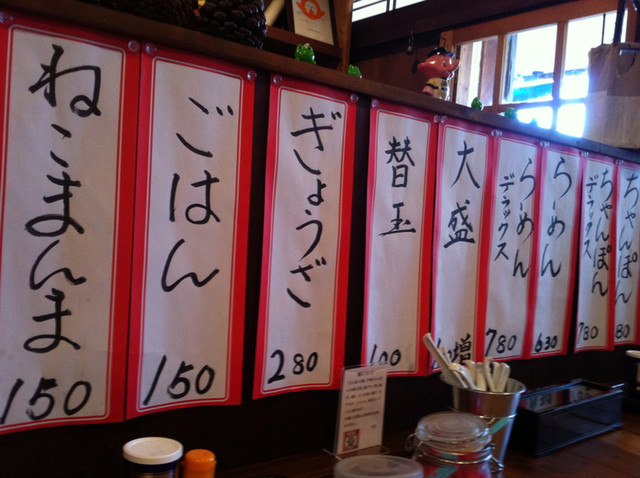 ちゃんぽん
80
ちゃんぽん
デラックス
780
らーめん
630
らーめん
デラックス
780
大盛
増
替玉
100
ぎょうざ
280
ごはん
150
ねこまんま
150